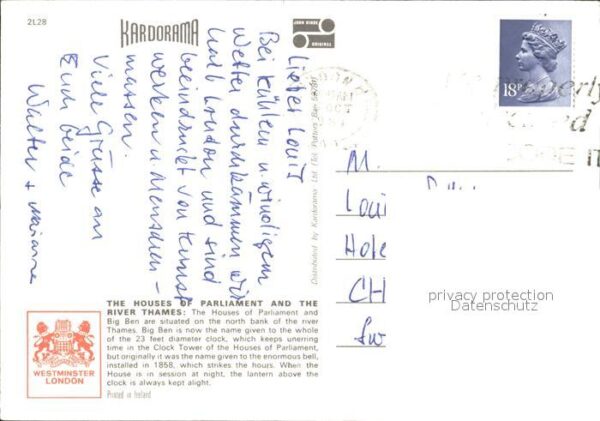 2L28
KARDORAMA
Lieber Louis
Bei kühlem u. windigem
Wetter durchkämmen wir
halb London und sind
beeindruckt von Kunst
werken u Menschen-
massen.
Viele Grüsse an
Euch beide
Walter + Marianne
Distributed by Kardorama Ltd (Tel. Potters Bar
18P
M.
Loui
Hote
CH
privacy protection
Datenschutz
THE HOUSES OF PARLIAMENT AND THE
RIVER THAMES: The Houses of Parliament and
Big Ben are situated on the north bank of the river
Thames. Big Ben is now the name given to the whole
of the 23 feet diameter clock, which keeps unerring
time in the Clock Tower of the Houses of Parliament,
but originally it was the name given to the enormous bell,
installed in 1858, which strikes the hours. When the
House is in session at night, the lantern above the
clock is always kept alight.
Printed in Ireland
WESTMINSTER
LONDON